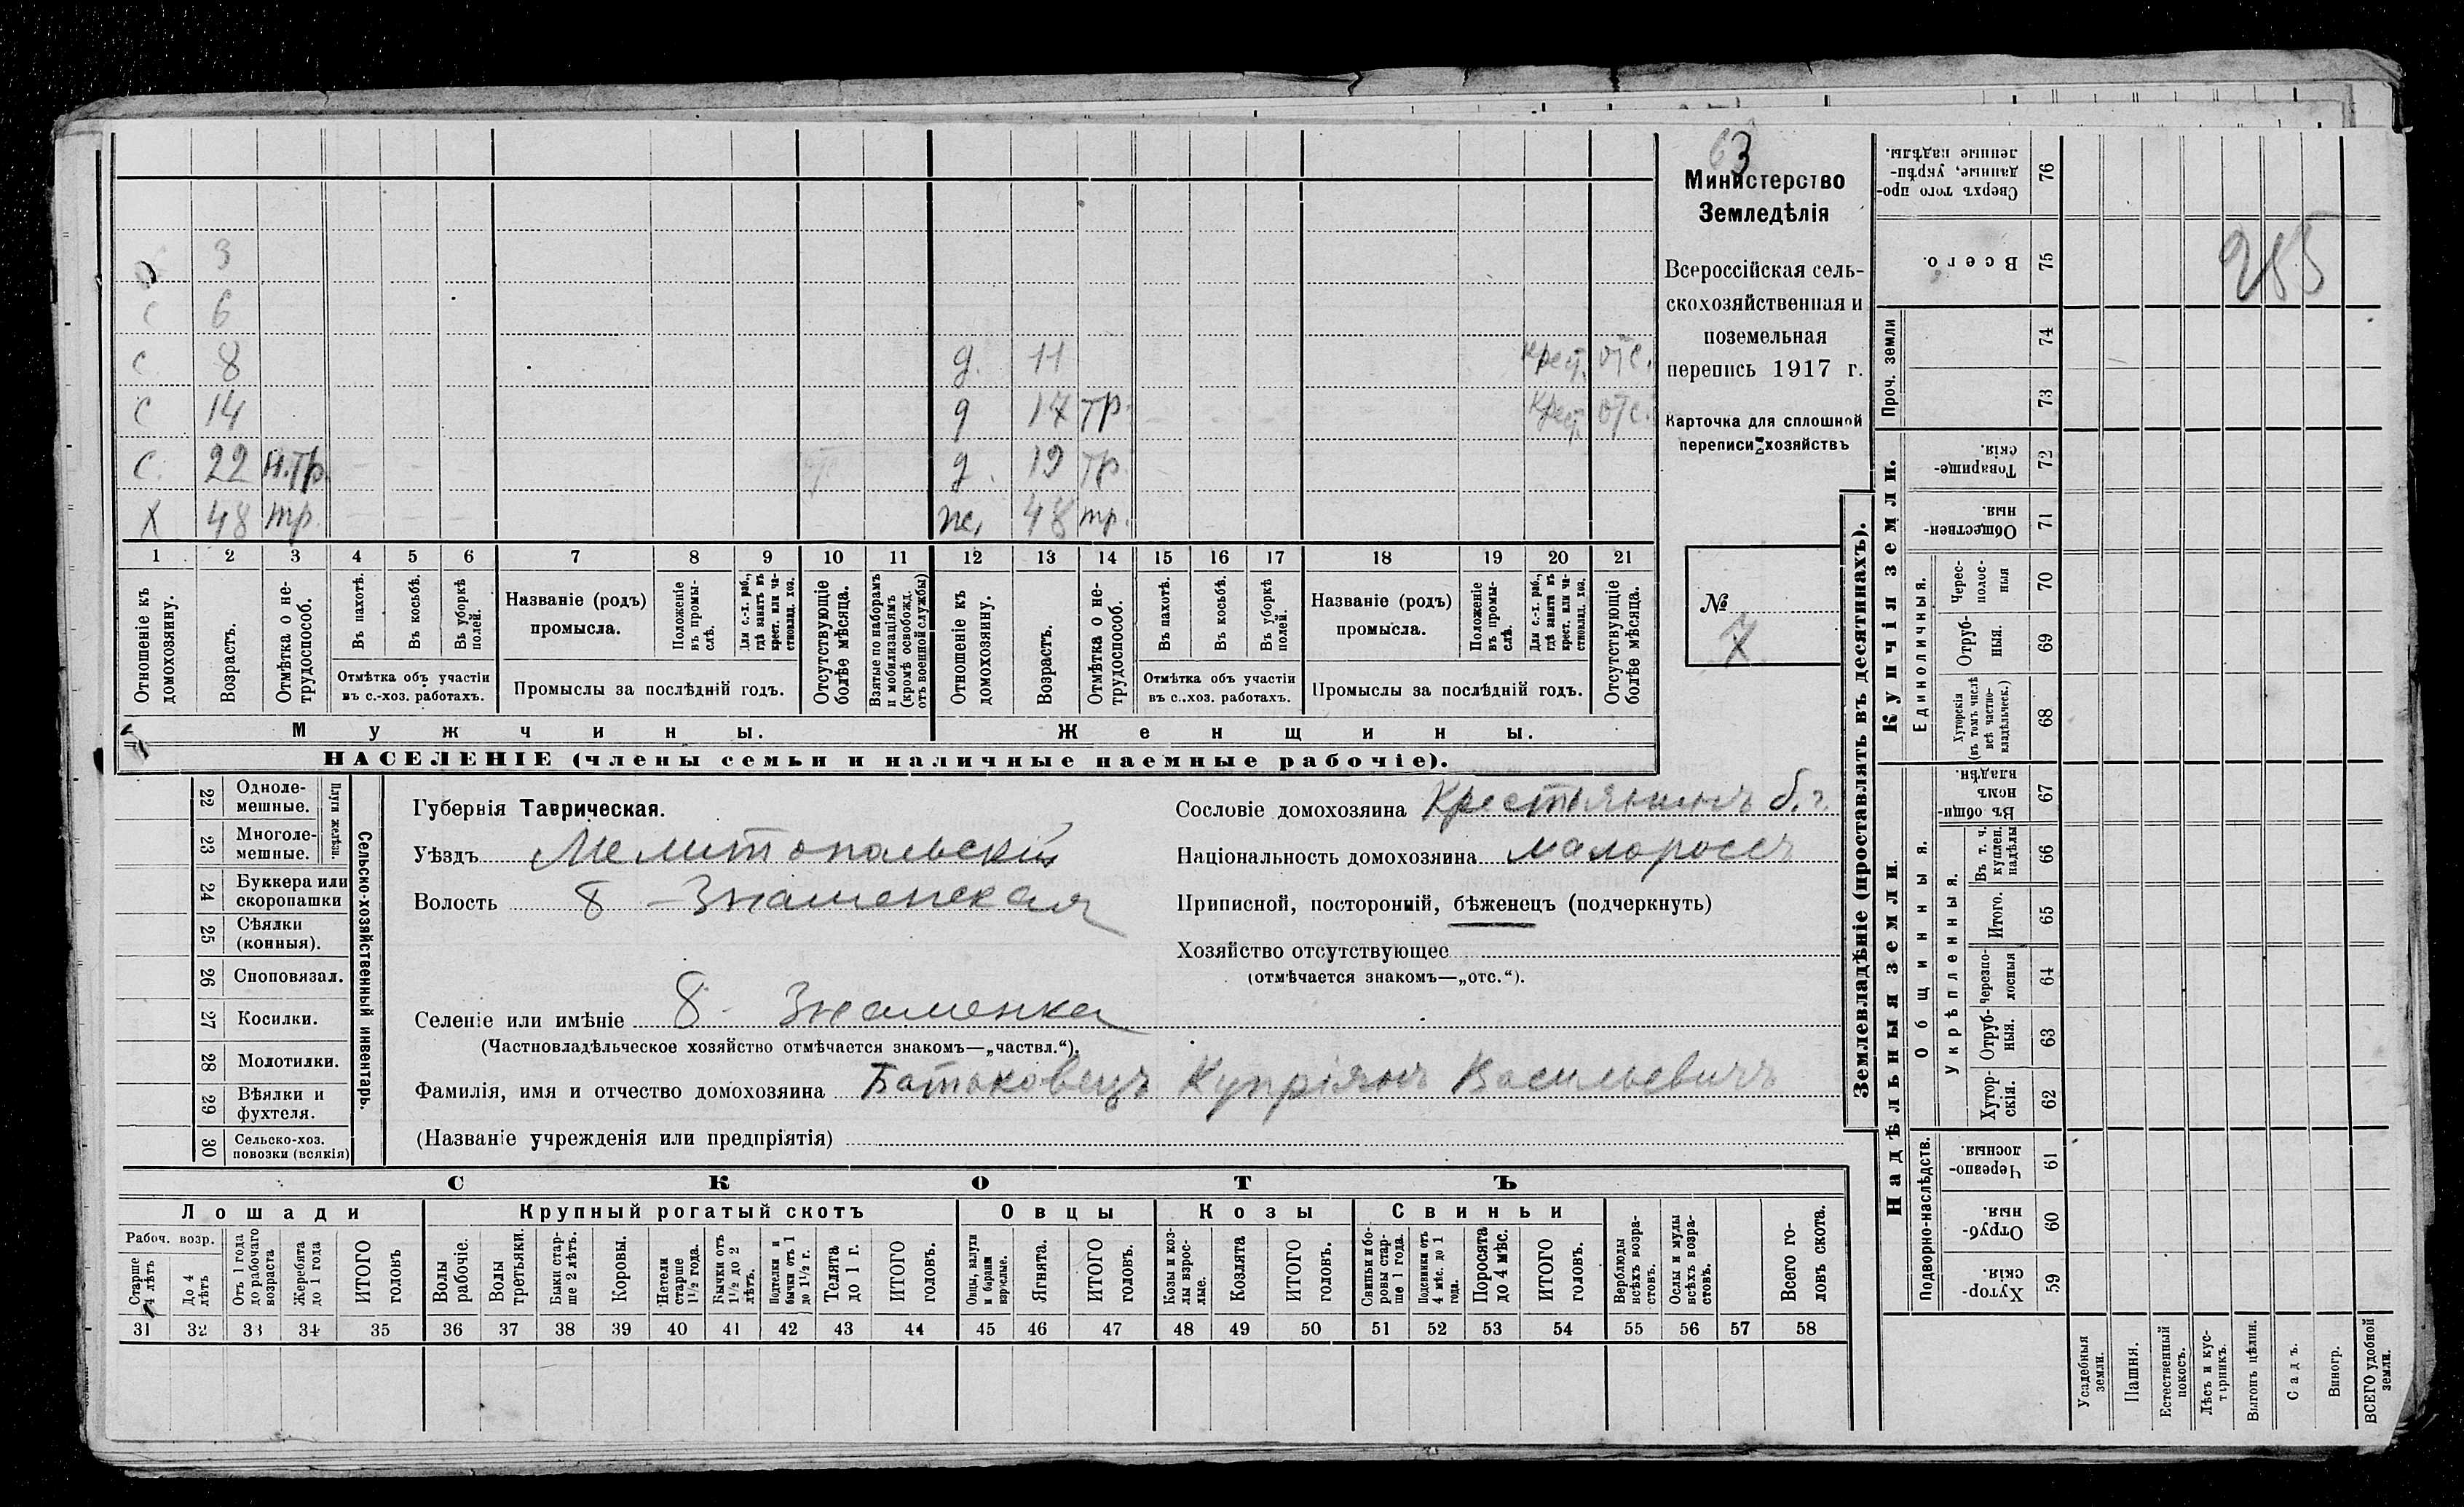 63
Министерство
Земледѣлія
Всероссійская сель-
скохозяйственная и
поземельная
перепись 1917 г.
Карточка для сплошной
переписи хозяйствъ
№
7
3
с 6
с 8 д. 11 крест. отс.
с 14 д 17 тр. Крест. отс.
с. 22 н.тр. д. 19 тр.
х 48 тр. ж. 48 тр.
1 2 3 4 5 6 7 8 9 10 11 12 13 14 15 16 17 18 19 20 21
Отношеніе къ домохозяину.
Возрастъ.
Отмѣтка о не-трудоспособ.
Въ пахотѣ.
Въ косьбѣ.
Въ уборкѣ полей.
Отмѣтка объ участіи
въ с.-хоз. работахъ.
Названіе (родъ)
промысла.
Положеніе въ промы-слѣ.
Для с.-х. раб., гдѣ занятъ въ крест. или ча-стновлад. хоз.
Промыслы за послѣдній годъ.
Отсутствующіе болѣе мѣсяца.
Взятые по наборамъ и мобилизаціямъ (кромѣ освобожд. отъ военной службы)
Отношеніе къ домохозяину.
Возрастъ.
Отмѣтка о не-трудоспособ.
Въ пахотѣ.
Въ косьбѣ.
Въ уборкѣ полей.
Отмѣтка объ участіи
въ с..хоз. работахъ.
Названіе (родъ)
промысла.
Положеніе въ промы-слѣ.
Для с.-х. раб., гдѣ занята въ крест. или ча-стновлад. хоз.
Промыслы за послѣдній годъ.
Отсутствующіе болѣе мѣсяца.
Мужчины.
Женщины.
НАСЕЛЕНІЕ (члены семьи и наличные наемные рабочіе).
22 Одноле-мешные.
23 Многоле-мешные.
Плуги желѣзн.
24 Буккера или скоропашки
25 Сѣялки (конныя).
26 Сноповязал.
27 Косилки.
28 Молотилки.
29 Вѣялки и фухтеля.
30 Сельско-хоз. повозки (всякія)
Сельско-хозяйственный инвентарь.
Губернія Таврическая.
Уѣздъ Мелитопольскій
Волость Б-Знаменская
Селеніе или имѣніе Б. Знаменка
(Частновладѣльческое хозяйство отмѣчается знакомъ—„частвл.“).
Фамилія, имя и отчество домохозяина Батаковецъ Купріянъ Васильевичъ
(Названіе учрежденія или предпріятія)
Сословіе домохозяина Крестьянинъ
Національность домохозяина малороссъ
Приписной, посторонній, бѣженецъ (подчеркнуть)
Хозяйство отсутствующее
(отмѣчается знакомъ—„отс.“).
СКОТЪ
Лошади
Крупный рогатый скотъ
Овцы
Козы
Свиньи
Рабоч. возр.
Старше 4 лѣтъ
До 4 лѣтъ
Отъ 1 года до рабочаго возраста
Жеребята до 1 года
ИТОГО головъ
Волы рабочіе.
Волы третьяки.
Быки стар-ше 2 лѣтъ.
Коровы.
Нетели старше 1½ года.
Бычки отъ 1½ до 2 лѣтъ.
Подтелки и бычки отъ 1 до 1½ г.
Телята до 1 г.
ИТОГО головъ.
Овцы, валухи и бараны взрослые.
Ягнята.
ИТОГО головъ.
Козы и коз-лы взрос-лые.
Козлята
ИТОГО головъ.
Свиньи и бо-ровы стар-ше 1 года.
Подсвинки отъ 4 мѣс. до 1 года.
Поросята до 4 мѣс.
ИТОГО головъ.
Верблюды всѣхъ возра-стовъ.
Ослы и мулы всѣхъ возра-стовъ.
Всего го-ловъ скота.
31 32 33 34 35 36 37 38 39 40 41 42 43 44 45 46 47 48 49 50 51 52 53 54 55 56 57 58
Землевладѣніе (проставлять въ десятинахъ).
Купчія земли.
Надѣльныя земли.
Сверхъ того про-данные, укрѣп-ленные надѣлы. 76
Всего. 75
Проч. земли 74
73
Товарище-скія. 72
Обществен-ныя. 71
Единоличныя.
Черес-полос-ныя 70
Отруб-ныя. 69
Хуторскія (въ томъ числѣ всѣ частно-владѣльческ.) 68
Общинныя.
Въ общи-номъ владѣн. 67
Укрѣпленныя.
Въ т. ч. куплен. надѣлы 66
Итого. 65
Черезпо-лосныя 64
Отруб-ныя. 63
Хутор-скія. 62
Подворно-наслѣдств.
Черезпо-лосныя. 61
Отруб-ныя. 60
Хутор-скія. 59
Усадебныя земли.
Пашня.
Естественный покосъ.
Лѣсъ и кус-тарникъ.
Выгонъ цѣлин.
Садъ.
Виногр.
ВСЕГО удобной земли.